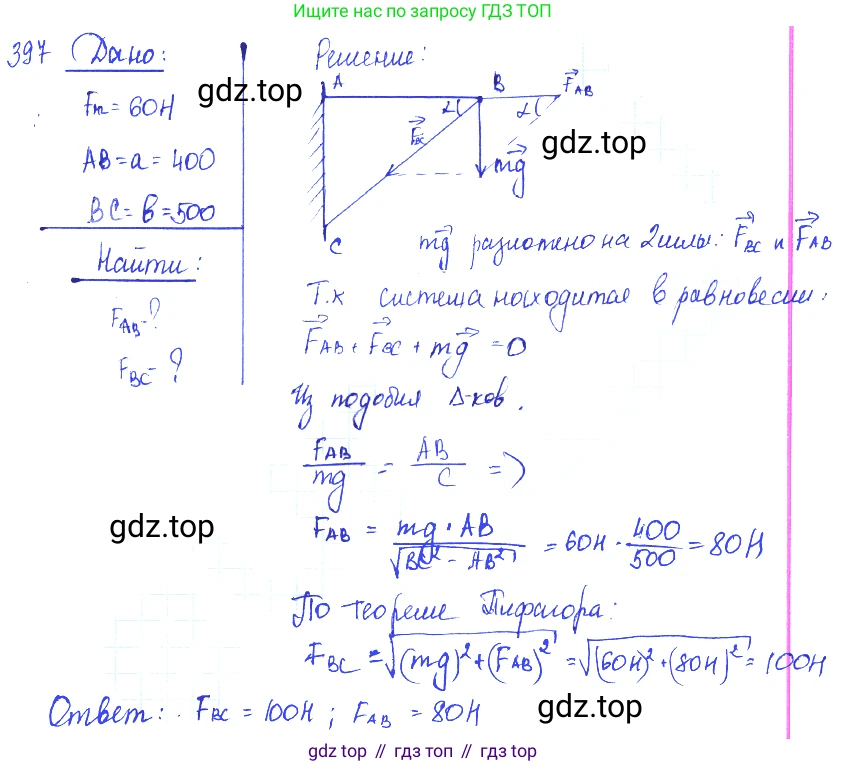 Ищите нас по запросу ГДЗ ТОП
397 Дано:
Решение:
Fт = 60Н
AB = a = 400
BC = в = 500
Найти:
F_AB - ?
F_BC - ?
A
B
F_AB
α
α
F_BC
mg
C
gdz.top
gdz.top
mg разложено на 2 силы: F_BC и F_AB
Т.к система находится в равновесии:
F_AB + F_BC + mg = 0
Из подобия Δ-ков.
F_AB / mg = AB / C =>
gdz.top
F_AB = mg · AB / √(BC² - AB²) = 60Н · 400 / 500 = 80Н
По теореме Пифагора:
F_BC = √((mg)² + (F_AB)²) = √((60Н)² + (80Н)²) = 100Н
Ответ: F_BC = 100Н ; F_AB = 80Н
gdz.top
gdz top // гдз топ // gdz top